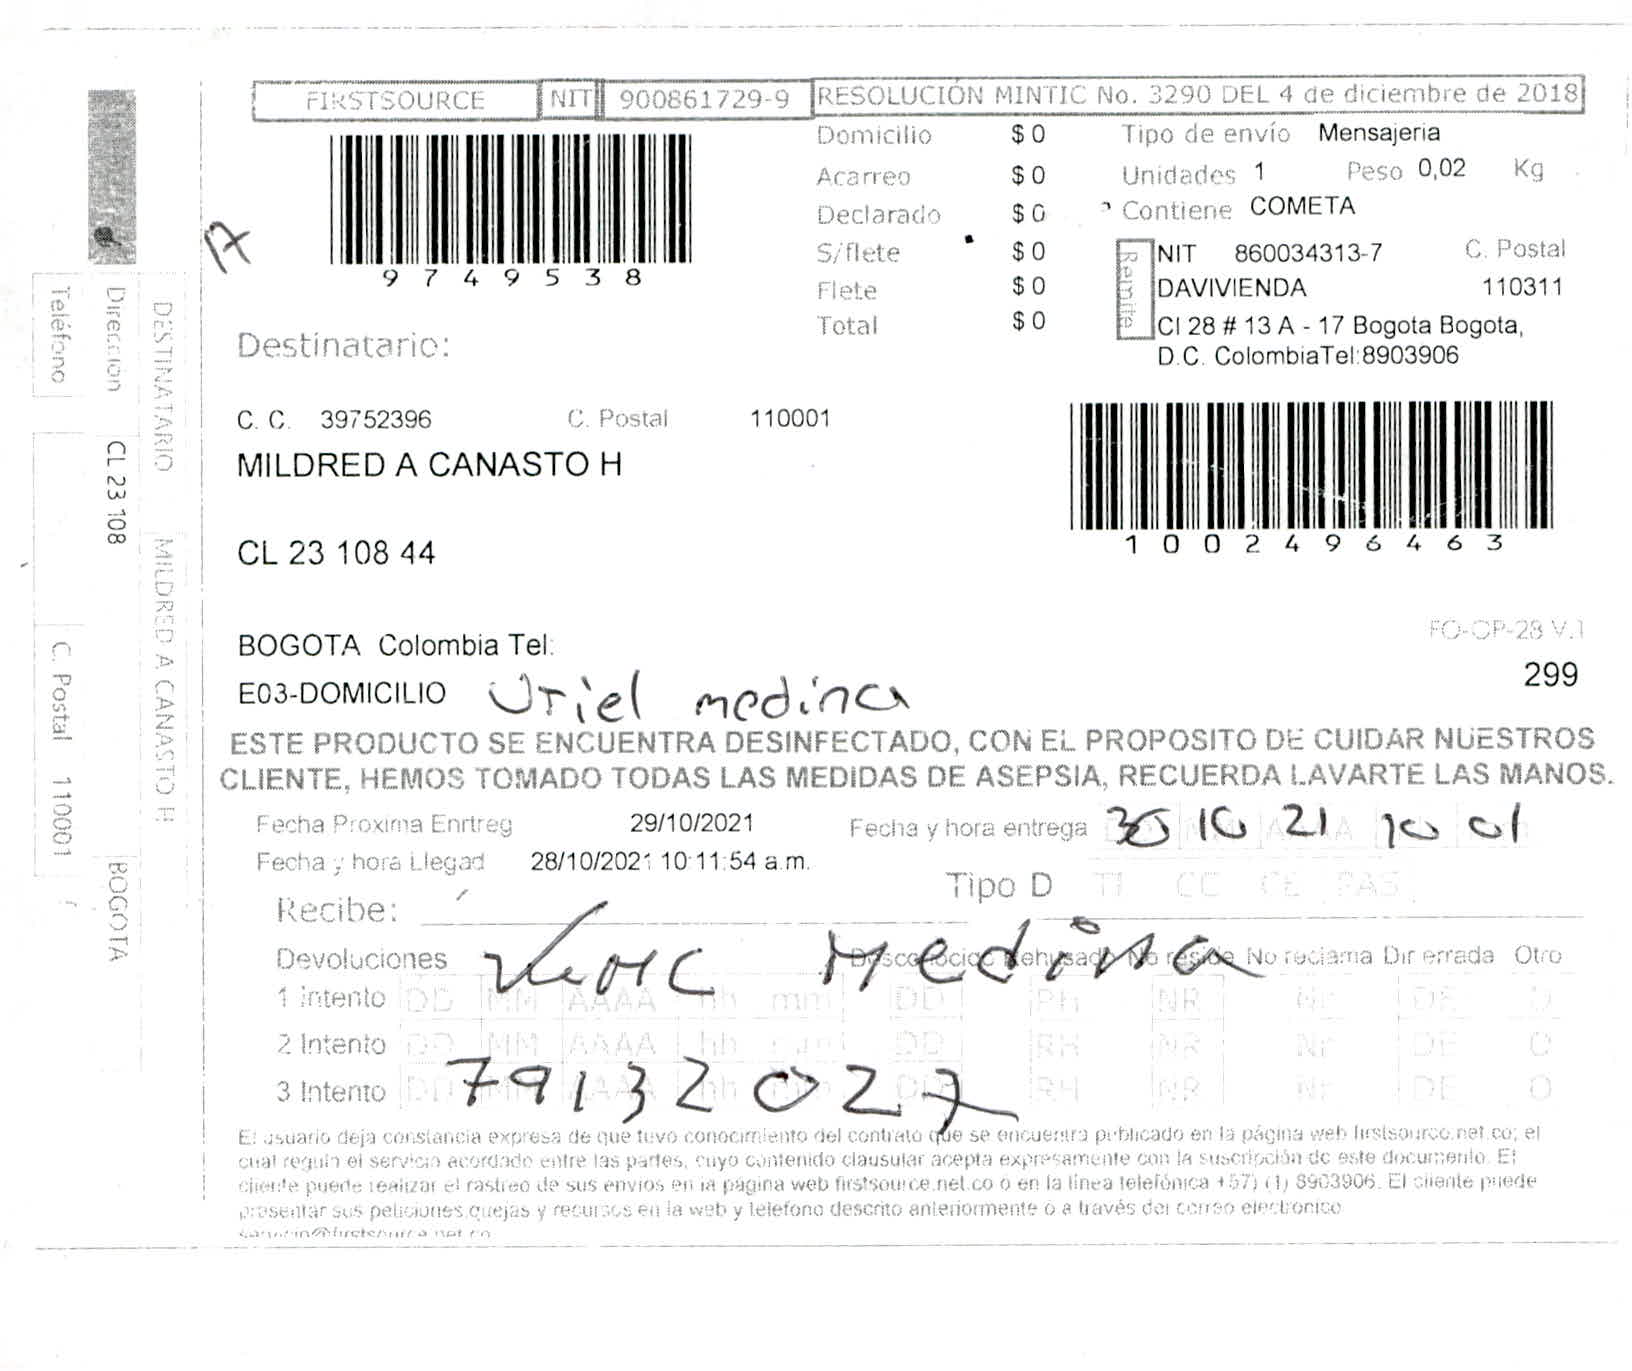 FIRSTSOURCE NIT 900861729-9 RESOLUCIÓN MINTIC No. 3290 DEL 4 de diciembre de 2018
9749538
17
Domicilio $ 0
Acarreo $ 0
Declarado $ 0
S/flete $ 0
Flete $ 0
Total $ 0
Tipo de envío Mensajeria
Unidades 1 Peso 0,02 Kg
Contiene COMETA
Remite
NIT 860034313-7 C. Postal
DAVIVIENDA 110311
Cl 28 # 13 A - 17 Bogota Bogota,
D.C. ColombiaTel:8903906
Destinatario:
C. C. 39752396 C. Postal 110001
MILDRED A CANASTO H
CL 23 108 44
1002496463
BOGOTA Colombia Tel:
FO-OP-28 V.1
299
E03-DOMICILIO Uriel medina
ESTE PRODUCTO SE ENCUENTRA DESINFECTADO, CON EL PROPOSITO DE CUIDAR NUESTROS
CLIENTE, HEMOS TOMADO TODAS LAS MEDIDAS DE ASEPSIA, RECUERDA LAVARTE LAS MANOS.
Fecha Proxima Enrtreg 29/10/2021
Fecha y hora entrega 30 10 21 10 01
Fecha y hora Llegad 28/10/2021 10:11:54 a.m.
Tipo D TI CC CE PAS
Recibe:
Medina
Devoluciones Desconocido Rehusado No reside No reclama Dir errada Otro
1 Intento DD MM AAAA hh mm DD RH NR Nr DE O
2 Intento DD MM AAAA hh mm DD RH NR Nr DE O
3 Intento DD MM AAAA hh mm DD RH NR Nr DE O
79132027
El usuario deja constancia expresa de que tuvo conocimiento del contrato que se encuentra publicado en la página web firstsource.net.co; el
cual regula el servicio acordado entre las partes, cuyo contenido clausular acepta expresamente con la suscripción de este documento. El
cliente puede realizar el rastreo de sus envios en la página web firstsource.net.co o en la línea telefónica +57) (1) 8903906. El cliente puede
presentar sus peticiones,quejas y recursos en la web y telefono descrito anteriormente o a través del correo electronico
servicio@firstsource.net.co
DESTINATARIO MILDRED A CANASTO H
Dirección CL 23 108 BOGOTA
Teléfono C. Postal 110001